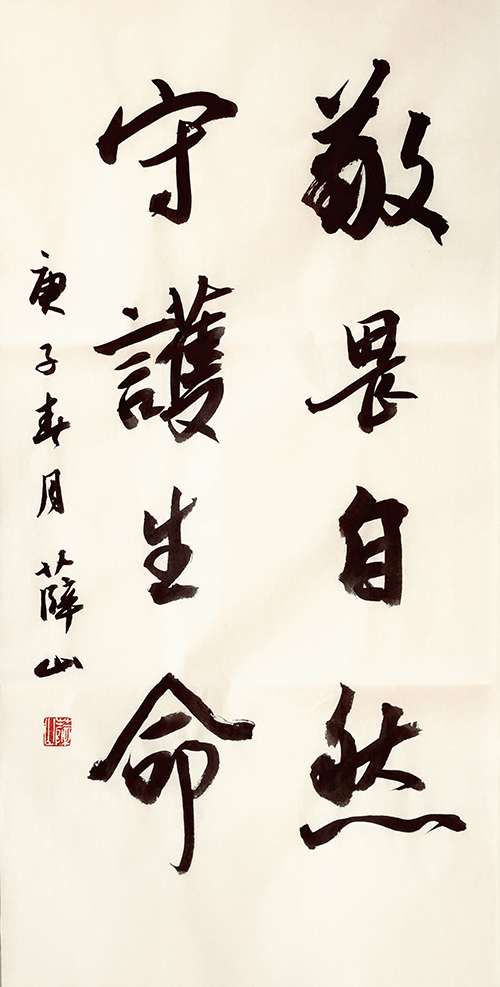 敬畏自然
守護生命
庚子春月 薛山